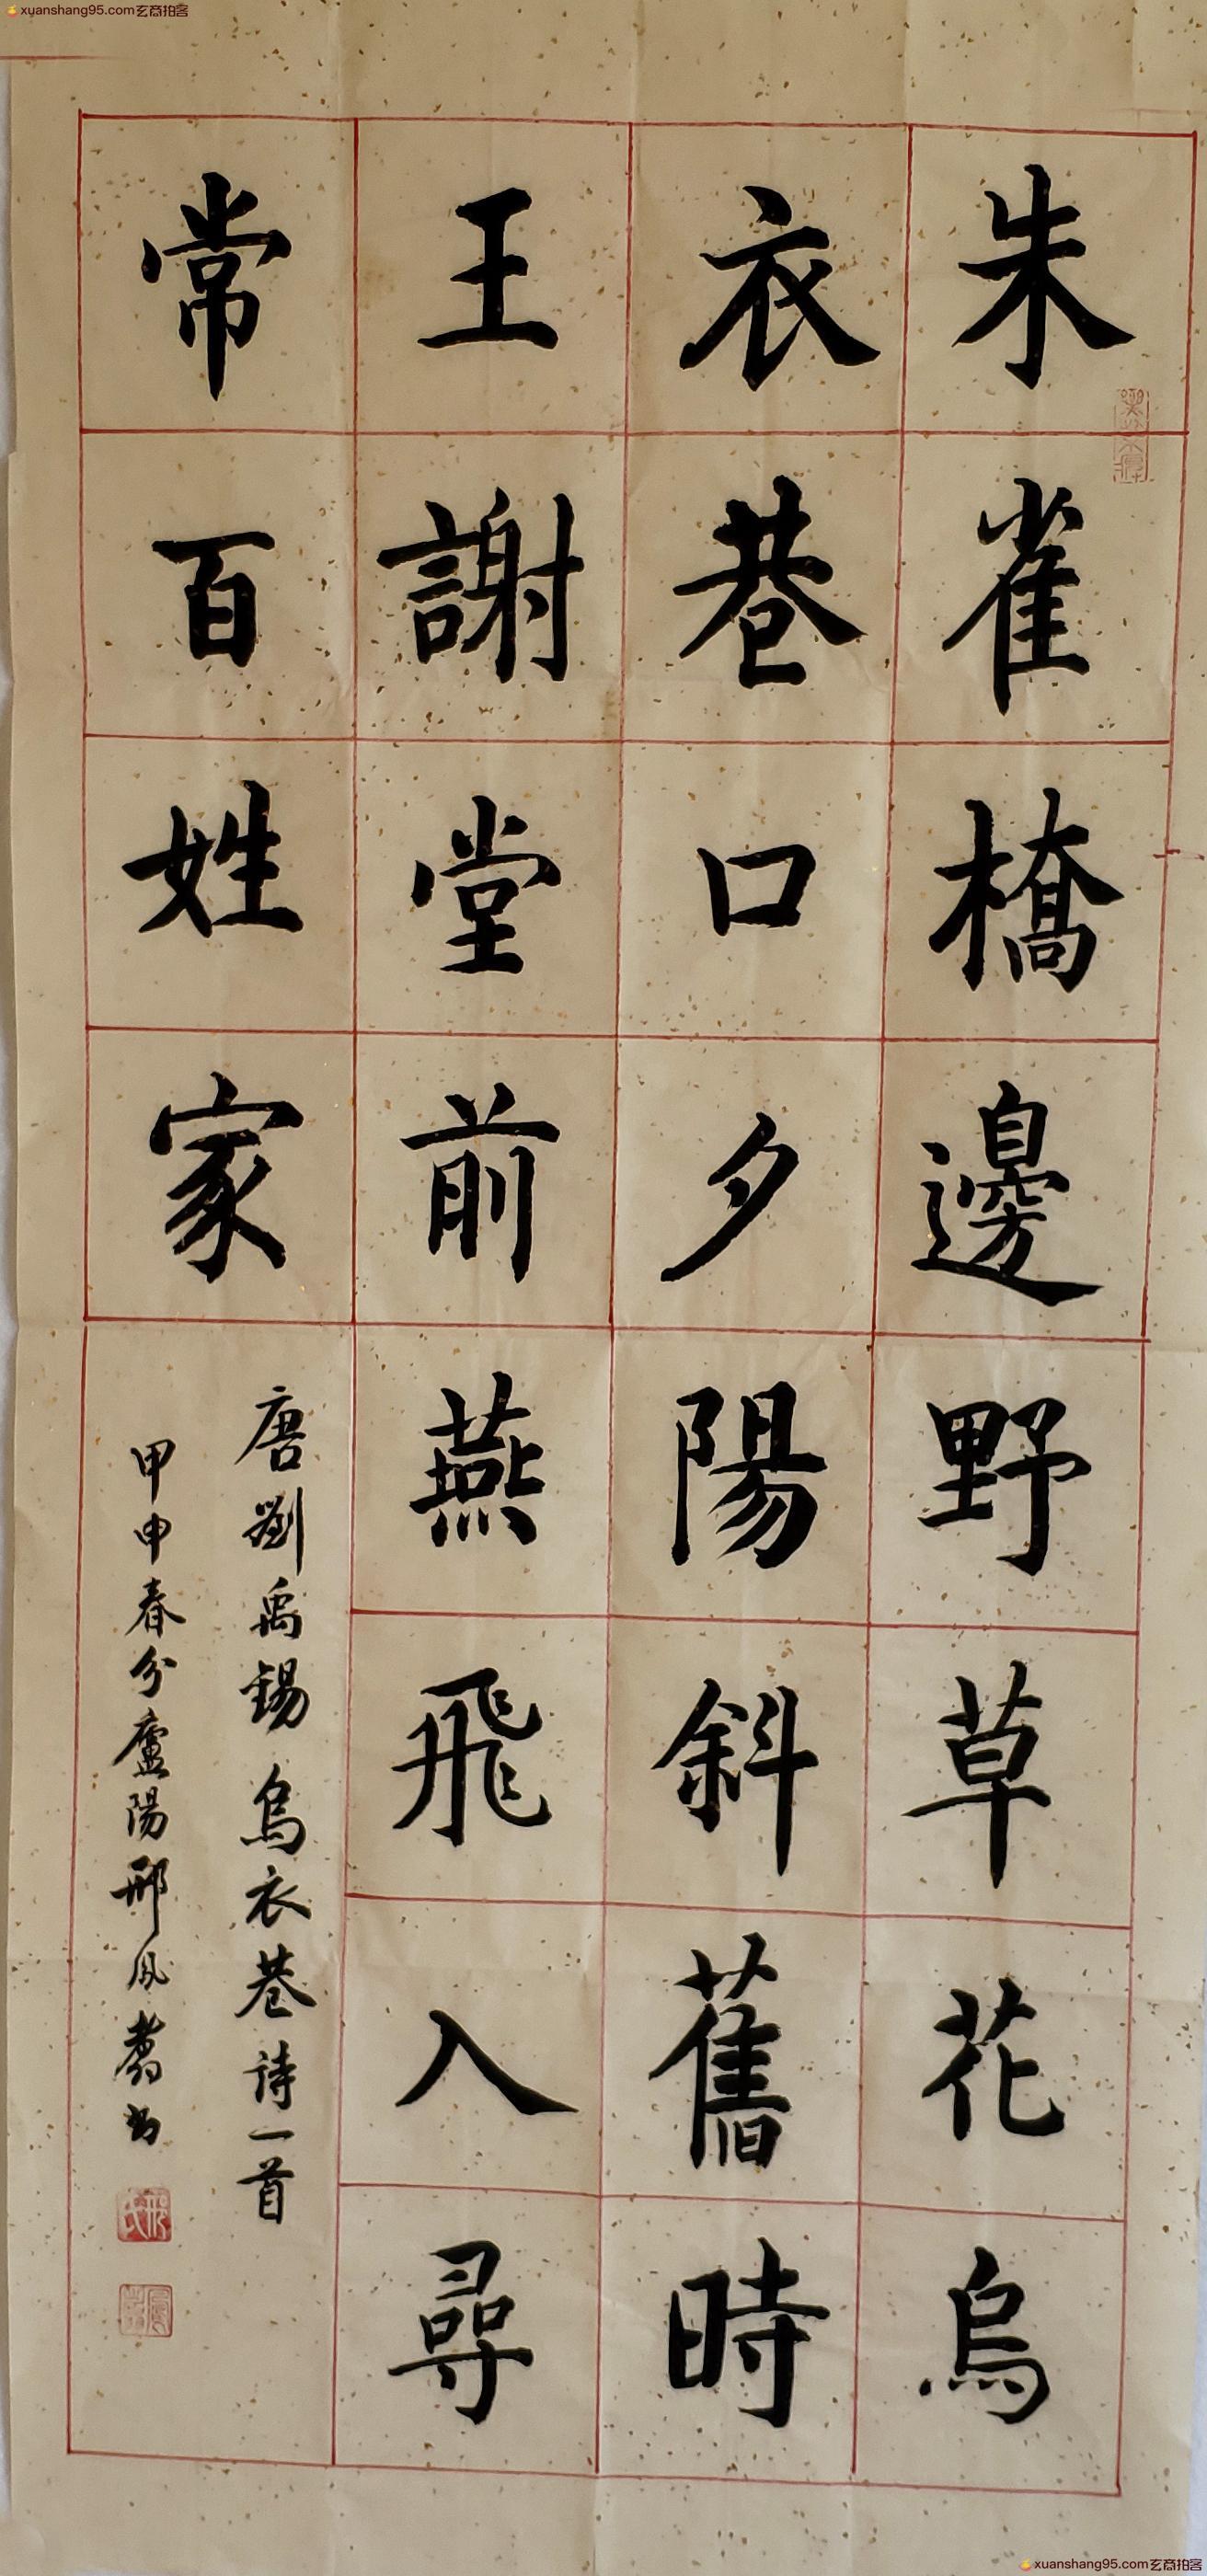 xuanshang95.com玄商拍客
朱雀橋邊野草花烏
衣巷口夕陽斜舊時
王謝堂前燕飛入尋
常百姓家
唐劉禹錫烏衣巷诗一首
甲申春分廬陽邢風翥书
xuanshang95.com玄商拍客